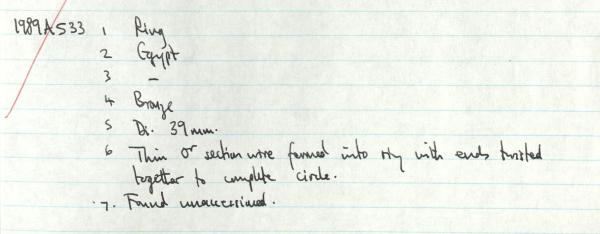 1989A533 1 Ring
2 Egypt
3 –
4 Bronze
5 Di. 39mm.
6 Thin O section wire formed into ring with ends twisted
together to complete circle.
7. Found unaccessioned.